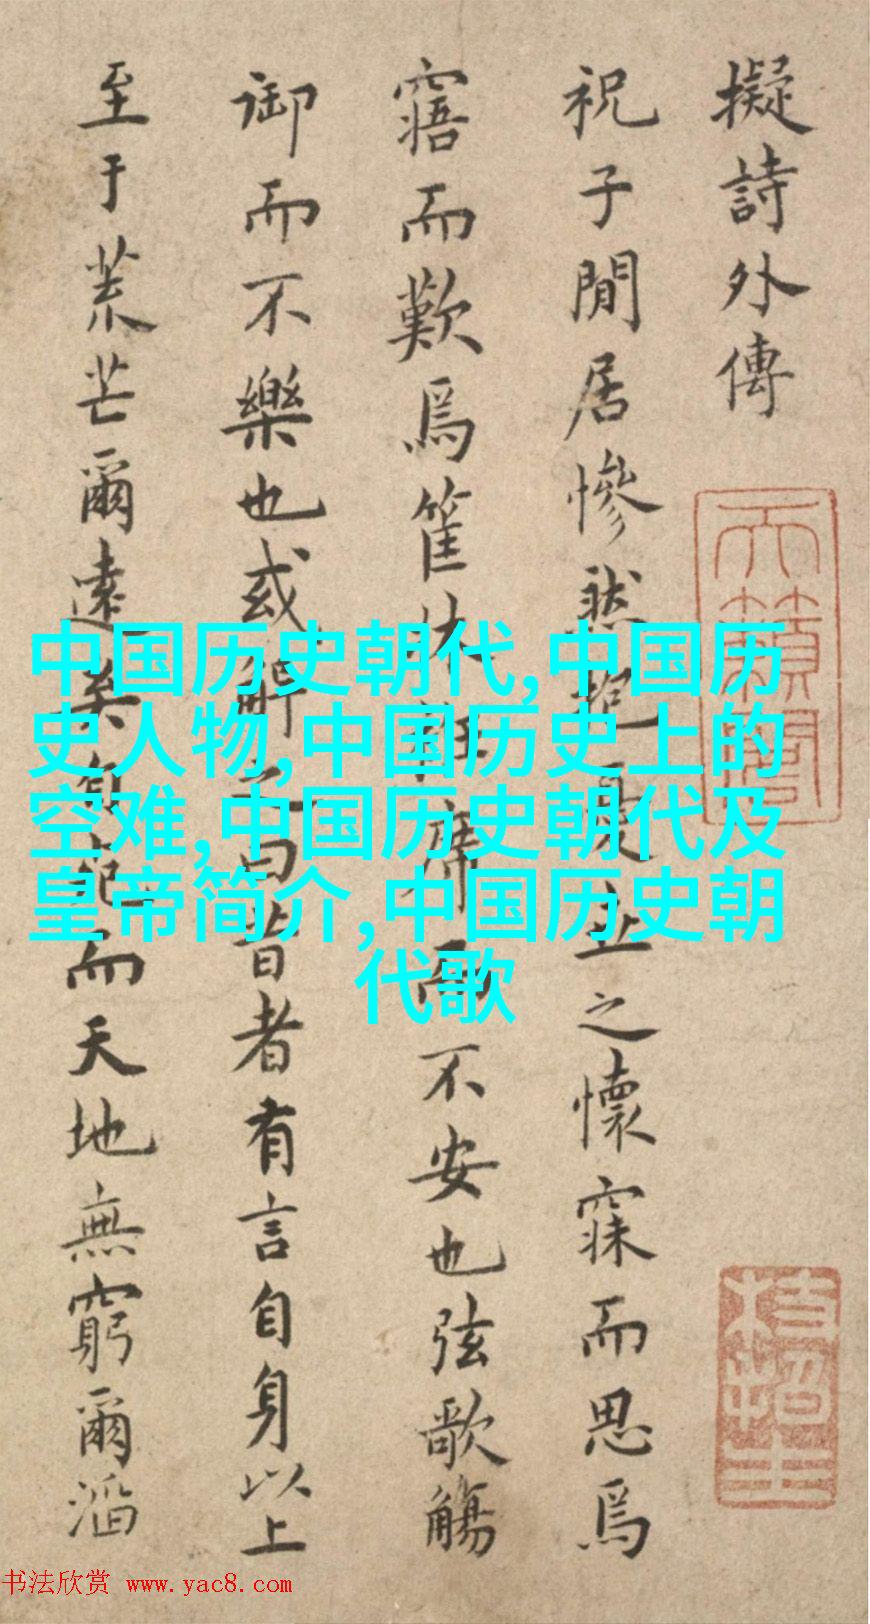 中国历史朝代,中国历
史人物,中国历史上的
空难,中国历史朝代及
皇帝简介,中国历史朝
代歌
擬詩外傳
天籟閣
枝指生
祝子閒居慘然抱憂世之懷寐而思焉
寤而歎焉筐牀衽席而不安也弦歌觴
御而不樂也或解之曰昔者有言自身以上
至于荒芒爾遠矣自而天地無窮爾滔
书法欣赏 www.yac8.com